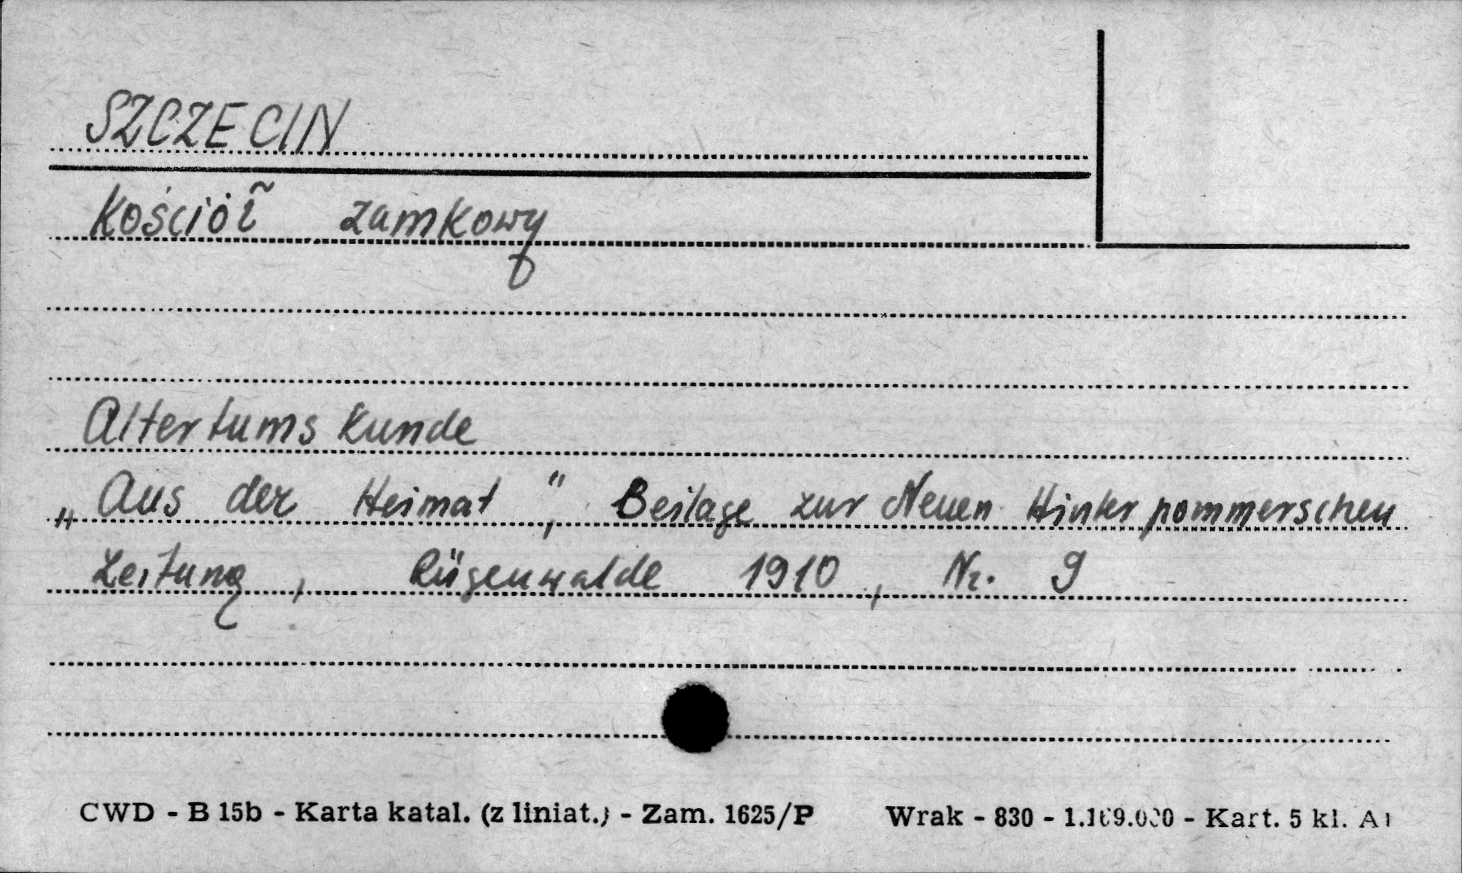 SZCZECIN
Kościół zamkowy
Altertumskunde
„Aus der Heimat“, Beilage zur Neuen Hinterpommerschen
Zeitung, Rügenwalde 1910, Nr. 9
CWD - B 15b - Karta katal. (z liniat.) - Zam. 1625/P Wrak - 830 - 1.169.000 - Kart. 5 kl. A1